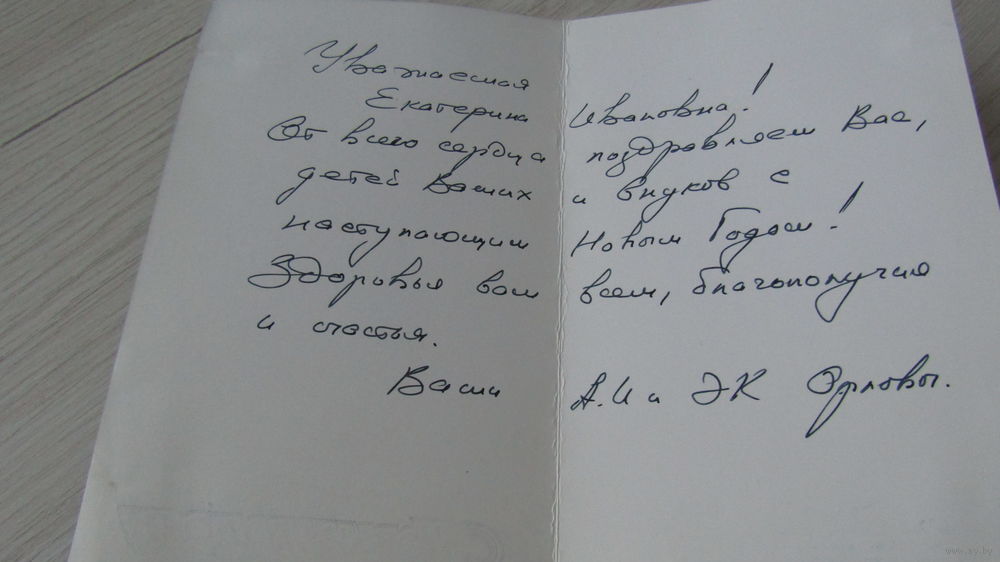 Уважаемая
Екатерина Ивановна!
От всего сердца поздравляем Вас,
детей Ваших и внуков с
наступающим Новым Годом!
Здоровья вам всем, благополучия
и счастья.
Ваши А.И и ЭК Орловы.
www.ay.by